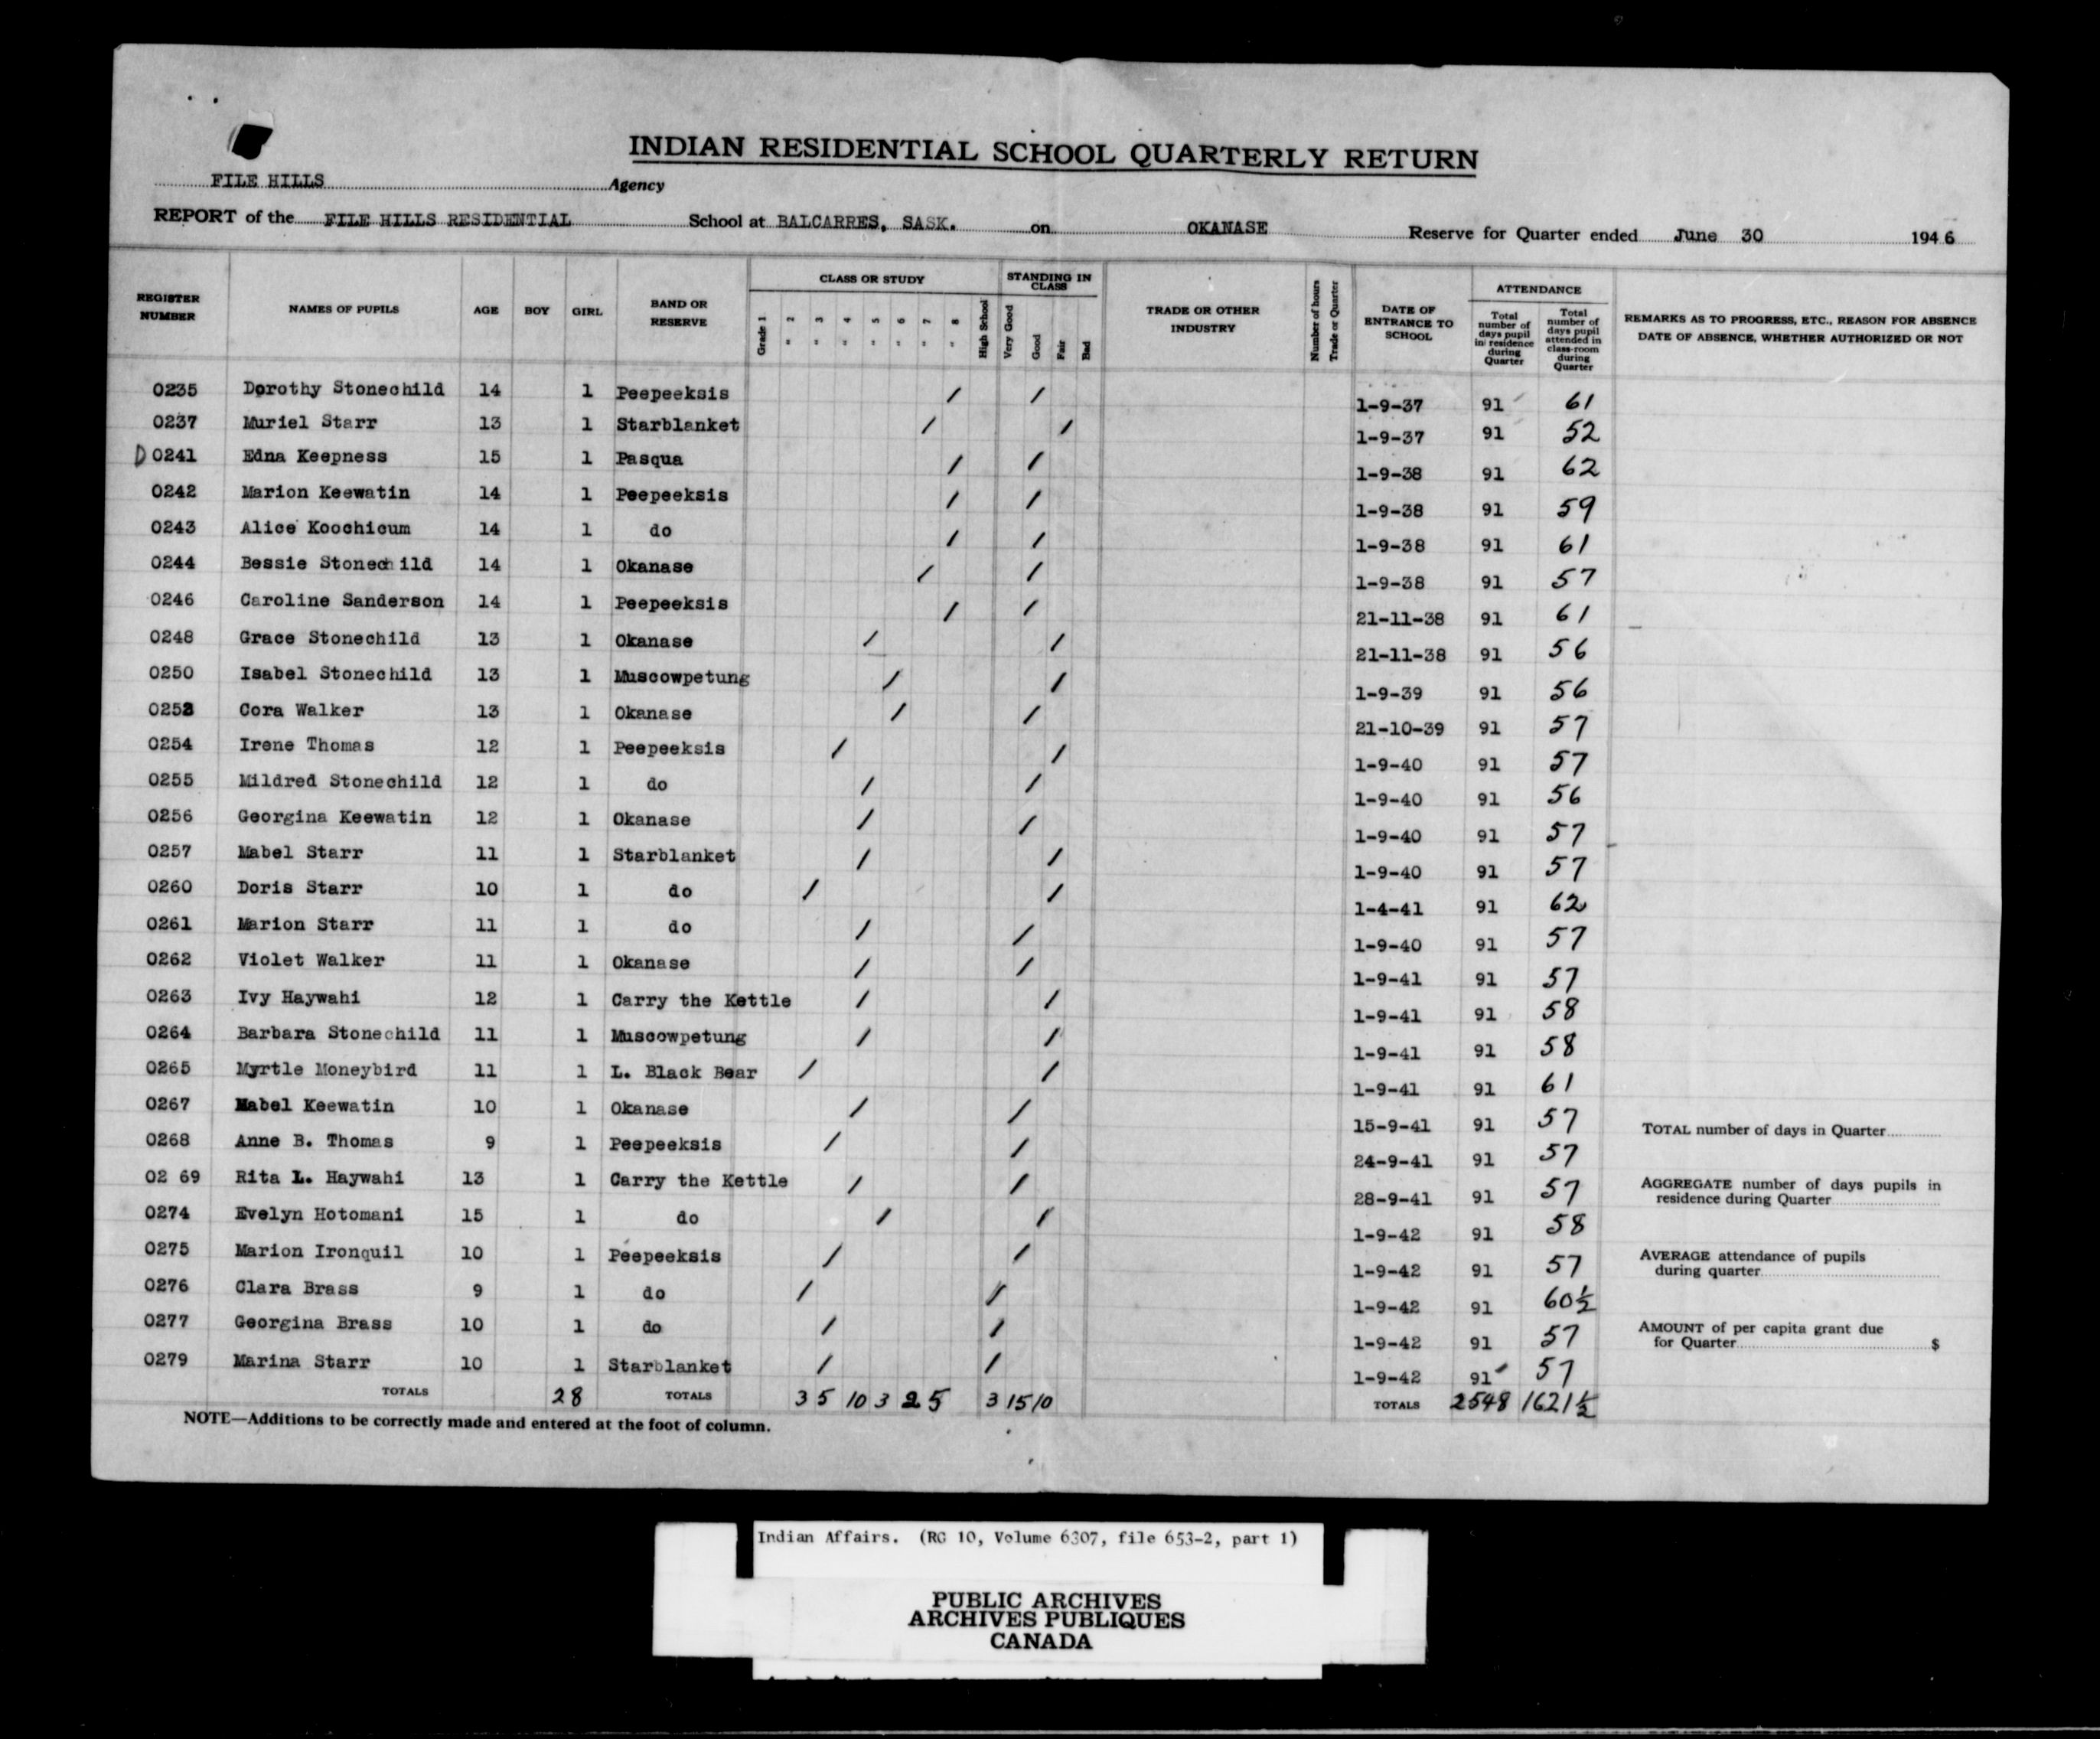 INDIAN RESIDENTIAL SCHOOL QUARTERLY RETURN
FILE HILLS Agency
REPORT of the FILE HILLS RESIDENTIAL School at BALCARRES, SASK. on OKANASE Reserve for Quarter ended June 30 1946
REGISTER NUMBER NAMES OF PUPILS AGE BOY GIRL BAND OR RESERVE CLASS OR STUDY Grade 1 " 2 " 3 " 4 " 5 " 6 " 7 " 8 High School STANDING IN CLASS Very Good Good Fair Bad TRADE OR OTHER INDUSTRY Number of hours Trade or Quarter DATE OF ENTRANCE TO SCHOOL ATTENDANCE Total number of days pupil in residence during Quarter Total number of days pupil attended in class-room during Quarter REMARKS AS TO PROGRESS, ETC., REASON FOR ABSENCE DATE OF ABSENCE, WHETHER AUTHORIZED OR NOT
0235 Dorothy Stonechild 14 1 Peepeeksis / / 1-9-37 91 61
0237 Muriel Starr 13 1 Starblanket / / 1-9-37 91 52
D 0241 Edna Keepness 15 1 Pasqua / / 1-9-38 91 62
0242 Marion Keewatin 14 1 Peepeeksis / / 1-9-38 91 59
0243 Alice Koochicum 14 1 do / / 1-9-38 91 61
0244 Bessie Stonechild 14 1 Okanase / / 1-9-38 91 57
0246 Caroline Sanderson 14 1 Peepeeksis / / 21-11-38 91 61
0248 Grace Stonechild 13 1 Okanase / / 21-11-38 91 56
0250 Isabel Stonechild 13 1 Muscowpetung / / 1-9-39 91 56
0252 Cora Walker 13 1 Okanase / / 21-10-39 91 57
0254 Irene Thomas 12 1 Peepeeksis / / 1-9-40 91 57
0255 Mildred Stonechild 12 1 do / / 1-9-40 91 56
0256 Georgina Keewatin 12 1 Okanase / / 1-9-40 91 57
0257 Mabel Starr 11 1 Starblanket / / 1-9-40 91 57
0260 Doris Starr 10 1 do / / 1-4-41 91 62
0261 Marion Starr 11 1 do / / 1-9-40 91 57
0262 Violet Walker 11 1 Okanase / / 1-9-41 91 57
0263 Ivy Haywahi 12 1 Carry the Kettle / / 1-9-41 91 58
0264 Barbara Stonechild 11 1 Muscowpetung / / 1-9-41 91 58
0265 Myrtle Moneybird 11 1 L. Black Bear / / 1-9-41 91 61
0267 Mabel Keewatin 10 1 Okanase / / 15-9-41 91 57 TOTAL number of days in Quarter
0268 Anne B. Thomas 9 1 Peepeeksis / / 24-9-41 91 57
02 69 Rita L. Haywahi 13 1 Carry the Kettle / / 28-9-41 91 57 AGGREGATE number of days pupils in residence during Quarter
0274 Evelyn Hotomani 15 1 do / / 1-9-42 91 58
0275 Marion Ironquil 10 1 Peepeeksis / / 1-9-42 91 57 AVERAGE attendance of pupils during quarter
0276 Clara Brass 9 1 do / / 1-9-42 91 60½
0277 Georgina Brass 10 1 do / / 1-9-42 91 57 AMOUNT of per capita grant due for Quarter $
0279 Marina Starr 10 1 Starblanket / / 1-9-42 91 57
TOTALS 28 TOTALS 3 5 10 3 2 5 3 15 10 TOTALS 2548 1621½
NOTE—Additions to be correctly made and entered at the foot of column.
Indian Affairs. (RG 10, Volume 6307, file 653-2, part 1)
PUBLIC ARCHIVES
ARCHIVES PUBLIQUES
CANADA